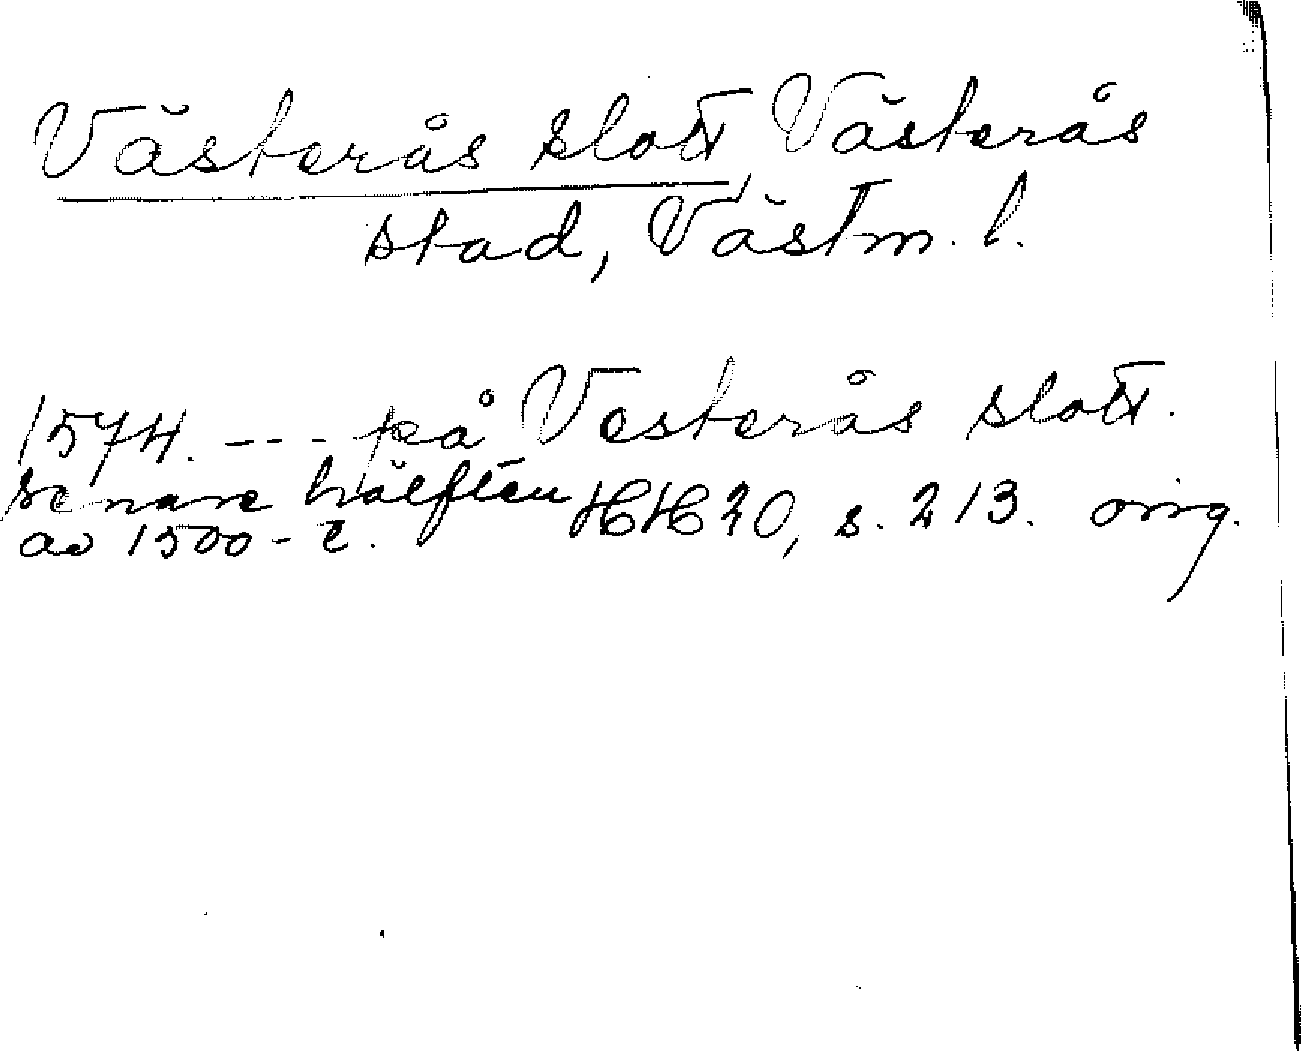 Västerås slott, Västerås
stad, Västm. l.
1574. --- på Vesterås slott.
senare hälften HH 20, s. 213. orig.
av 1500-t.